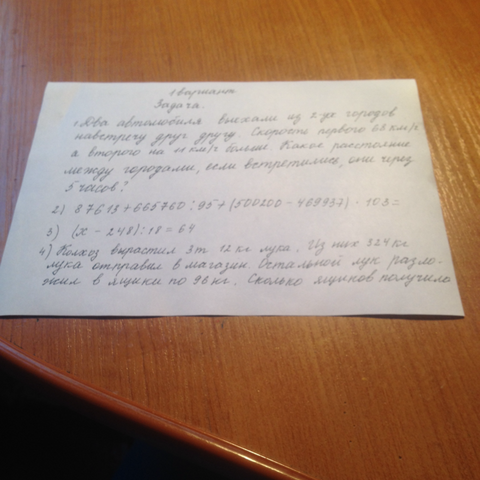 1 вариант
Задача.
1) Два автомобиля выехали из 2-ух городов
навстречу друг другу. Скорость первого 68 км/ч
а второго на км/ч больше. Какое расстояние
между городами, если встретились они через
5 часов?
2) 87613 + 665760 : 95 + (500200 - 469937) · 103 =
3) (x - 248) : 18 = 64
4) Колхоз вырастил 3т 12 кг лука. Из них 324 кг
лука отправил в магазин. Остальной лук разло-
жил в ящики по 96 кг. Сколько ящиков получило